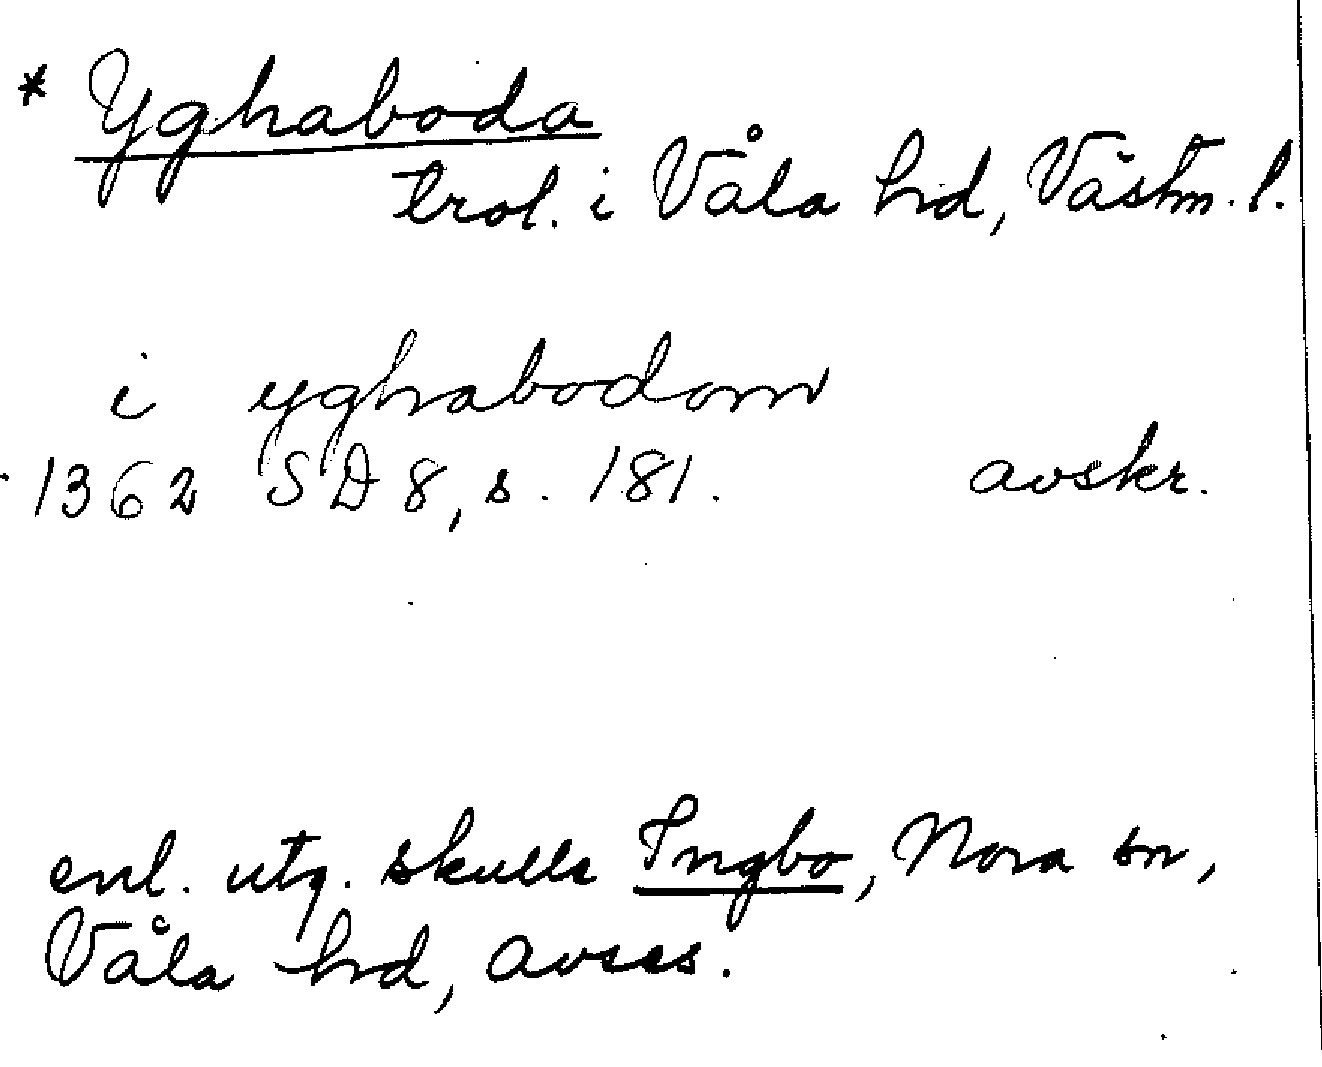 * Yghaboda
trol. i Våla hd, Västm. l.
i yghabodom
1362 SD 8, s. 181. avskr.
enl. utg. skulle Ingbo, Nora sn,
Våla hd, avses.